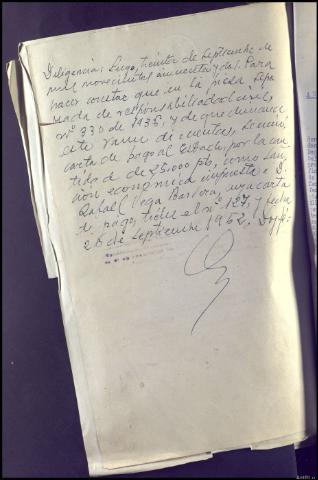 Diligencia: Lugo, treinta de Septiembre de
mil novecientos cincuenta y dos. Para
hacer constar que en la pieza sepa
rada de responsabilidad civil,
nº 330 de 1938, y de que dimana
este ramo de cuentas,
carta de pago al Estado, por la can
tidad de 25.000 pts, como san
ción económica impuesta a D.
Rafael Vega Barrera, cuya carta
de pago, tiene el nº 127, y fecha
26 de Septiembre 1952. Doy fé: